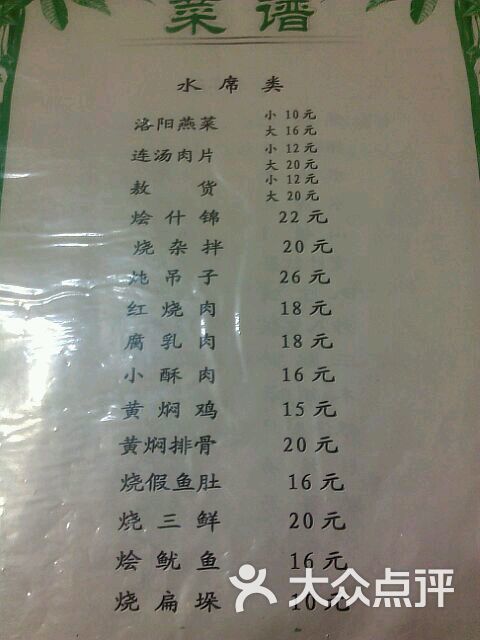 菜谱
水席类
洛阳燕菜 小 10元
大 16元
连汤肉片 小 12元
大 20元
敖货 小 12元
大 20元
烩什锦 22元
烧杂拌 20元
炖吊子 26元
红烧肉 18元
腐乳肉 18元
小酥肉 16元
黄焖鸡 15元
黄焖排骨 20元
烧假鱼肚 16元
烧三鲜 20元
烩鱿鱼 16元
烧扁垛 10元
大众点评